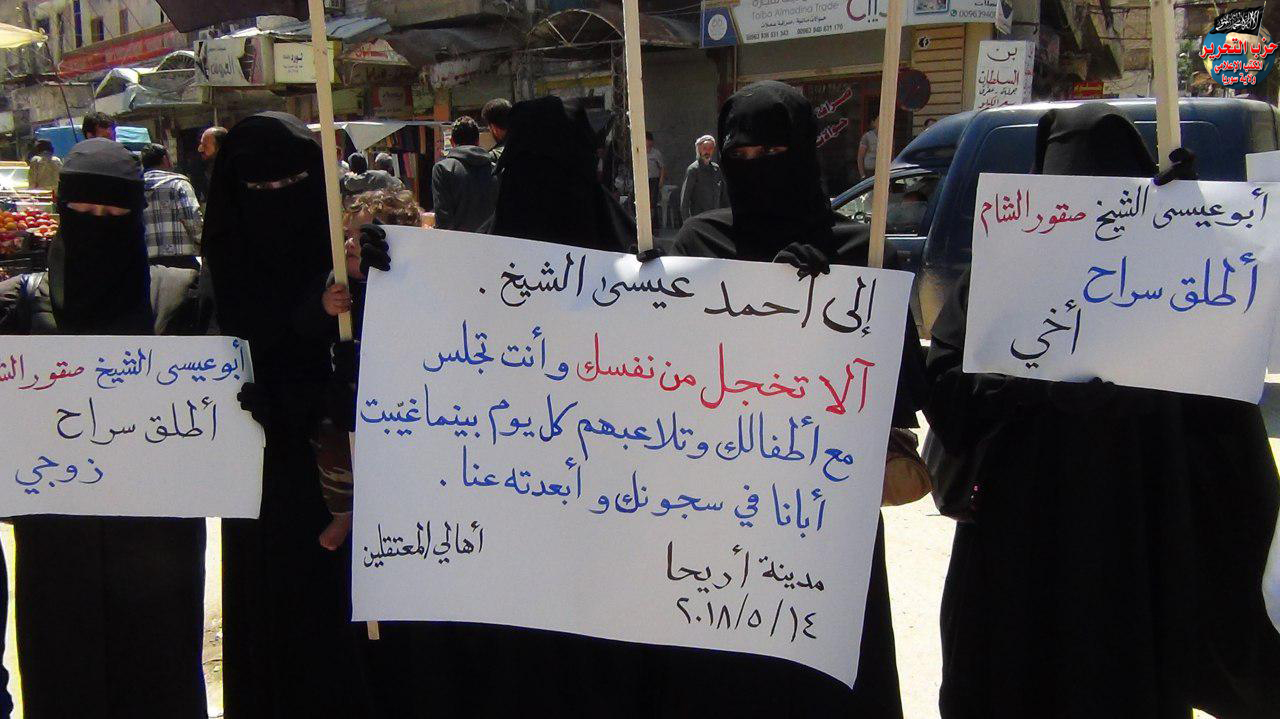 إلى أحمد عيسى الشيخ .
آلا تخجل من نفسك وأنت تجلس
مع أطفالك وتلاعبهم كل يوم بينما غيّبت
أبانا في سجونك و أبعدته عنا .
أهالي المعتقلين
مدينة أريحا
٢٠١٨/٥/١٤
أبو عيسى الشيخ صقور الشام
أطلق سراح
أخي
أبو عيسى الشيخ صقور الش
أطلق سراح
زوجي
حزب التحرير
المكتب الإعلامي
ولاية سوريا
Talba Almadina Trade
بن
السلطان